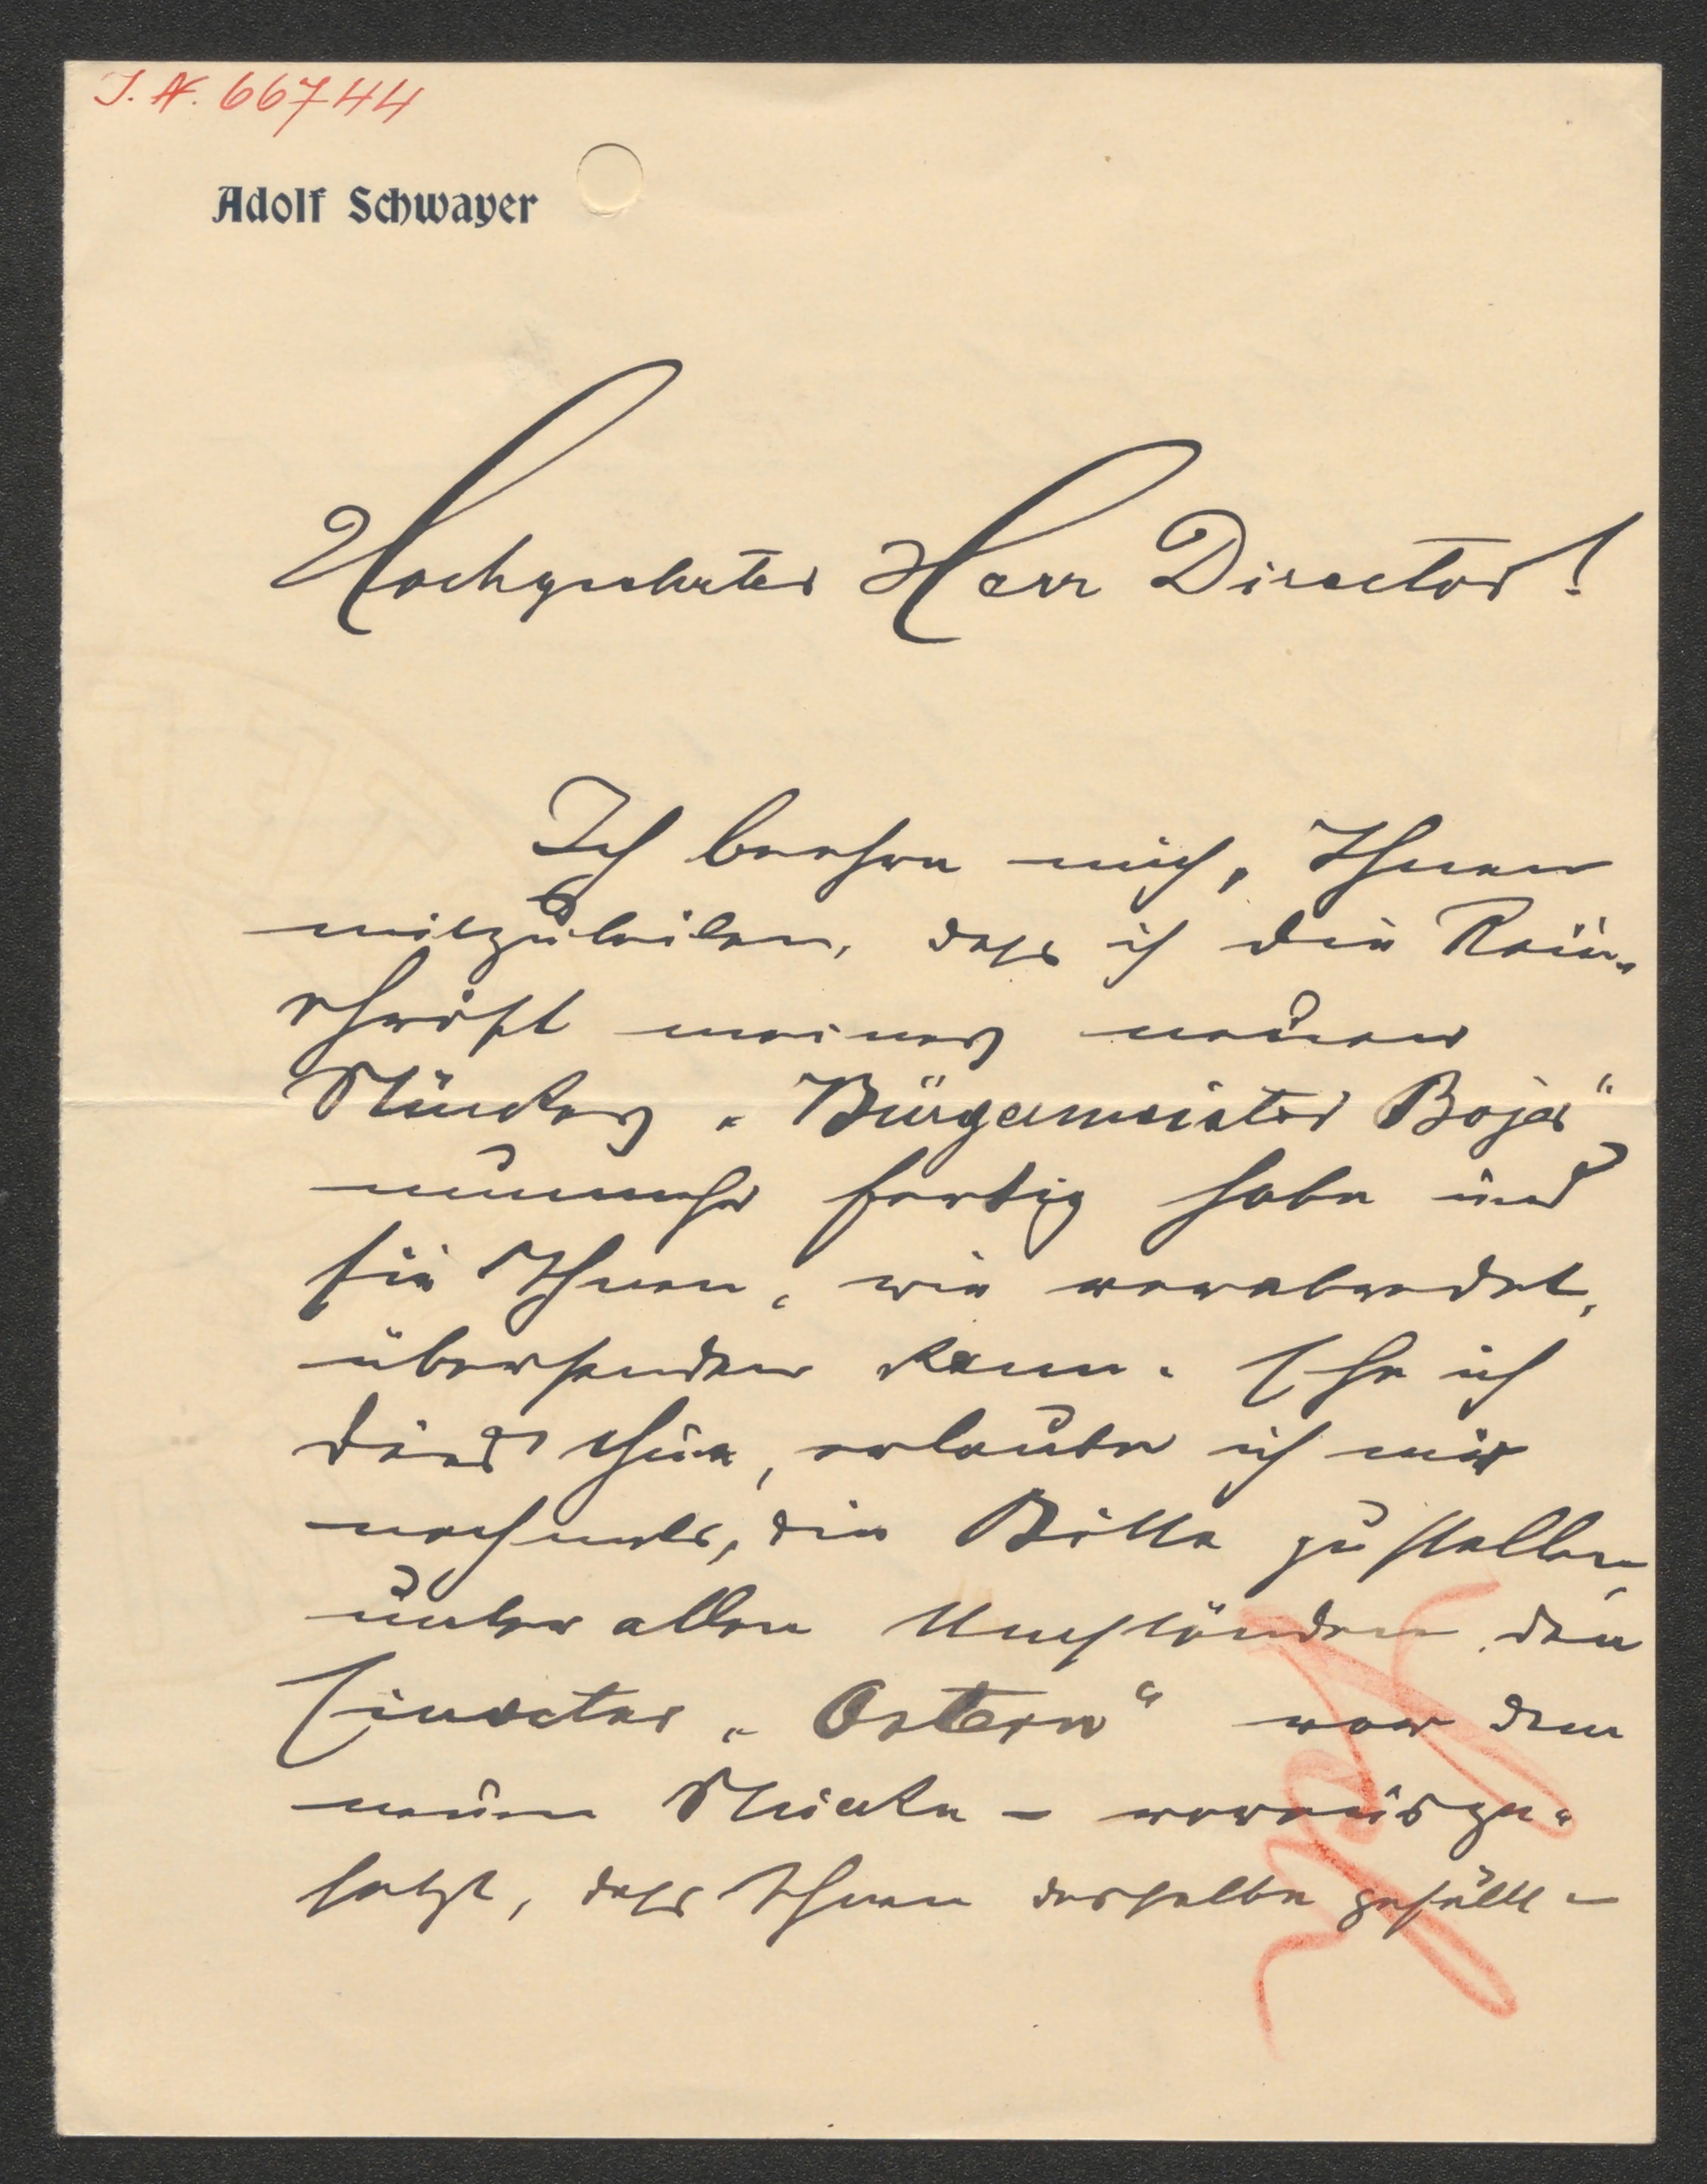 J. N. 66744
Adolf Schwayer
Hochgeehrter Herr Director!
Ich beehre mich, Ihnen
mitzutheilen, dass ich die Rein-
schrift meines neuen
Stückes „Bürgermeister Bojer“
nunmehr fertig habe und
sie Ihnen, wie verabredet,
übersenden kann. Ehe ich
dies thue, erlaube ich mir
nochmals, die Bitte zu stellen,
unter allen Umständen den
Einacter „Ostern“ vor dem
neuen Stücke – vorausge-
setzt, dass Ihnen dasselbe gefällt –